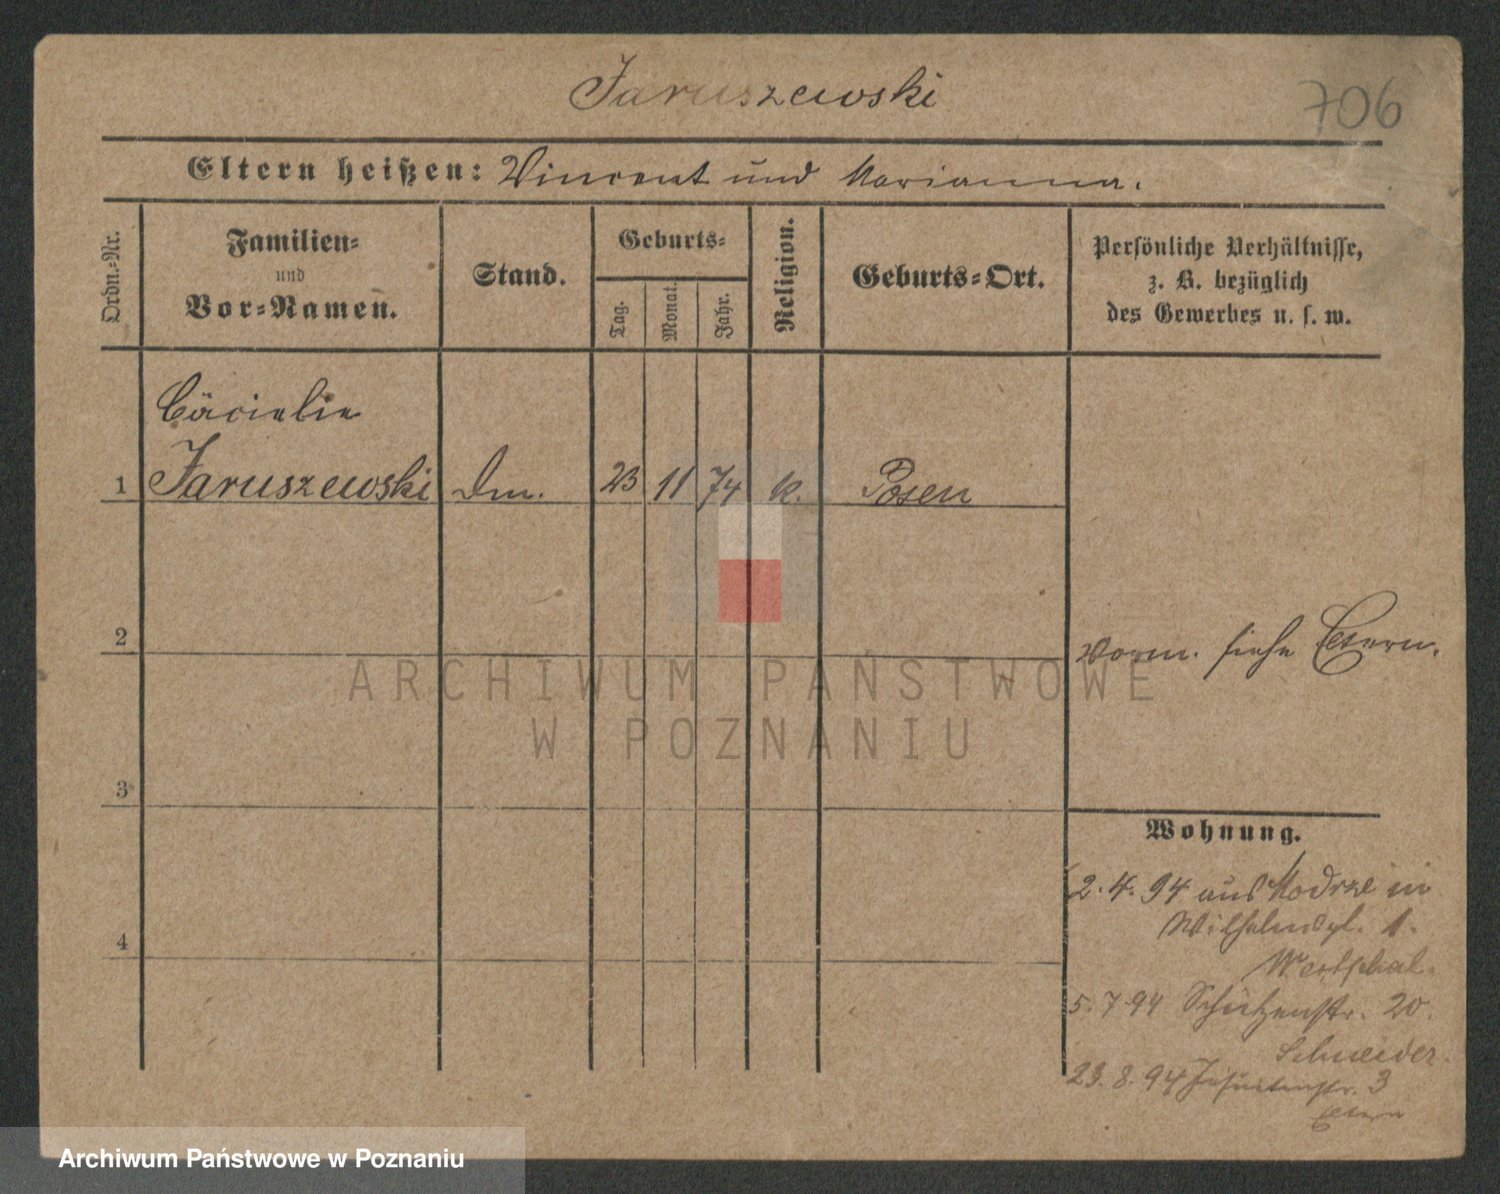 Jaruszewski
706
Eltern heißen: Vincent und Marianna.
Ordn.-Nr.
Familien-
und
Vor-Namen.
Stand.
Geburts-
Tag.
Monat.
Jahr.
Religion.
Geburts-Ort.
Persönliche Verhältnisse,
z. B. bezüglich
des Gewerbes u. s. w.
Cäcielie
1 Jaruszewski Dm. 23 11 74 k. Posen
2
vorm. siehe Eltern.
ARCHIWUM PAŃSTWOWE
W POZNANIU
3
Wohnung.
2.4.94 aus Modrze in
Wilhelmspl. 1.
4
Westphal.
5.7.94 Schützenstr. 20.
Schneider.
23.8.94 Jesuitenstr. 3
Eltern
Archiwum Państwowe w Poznaniu